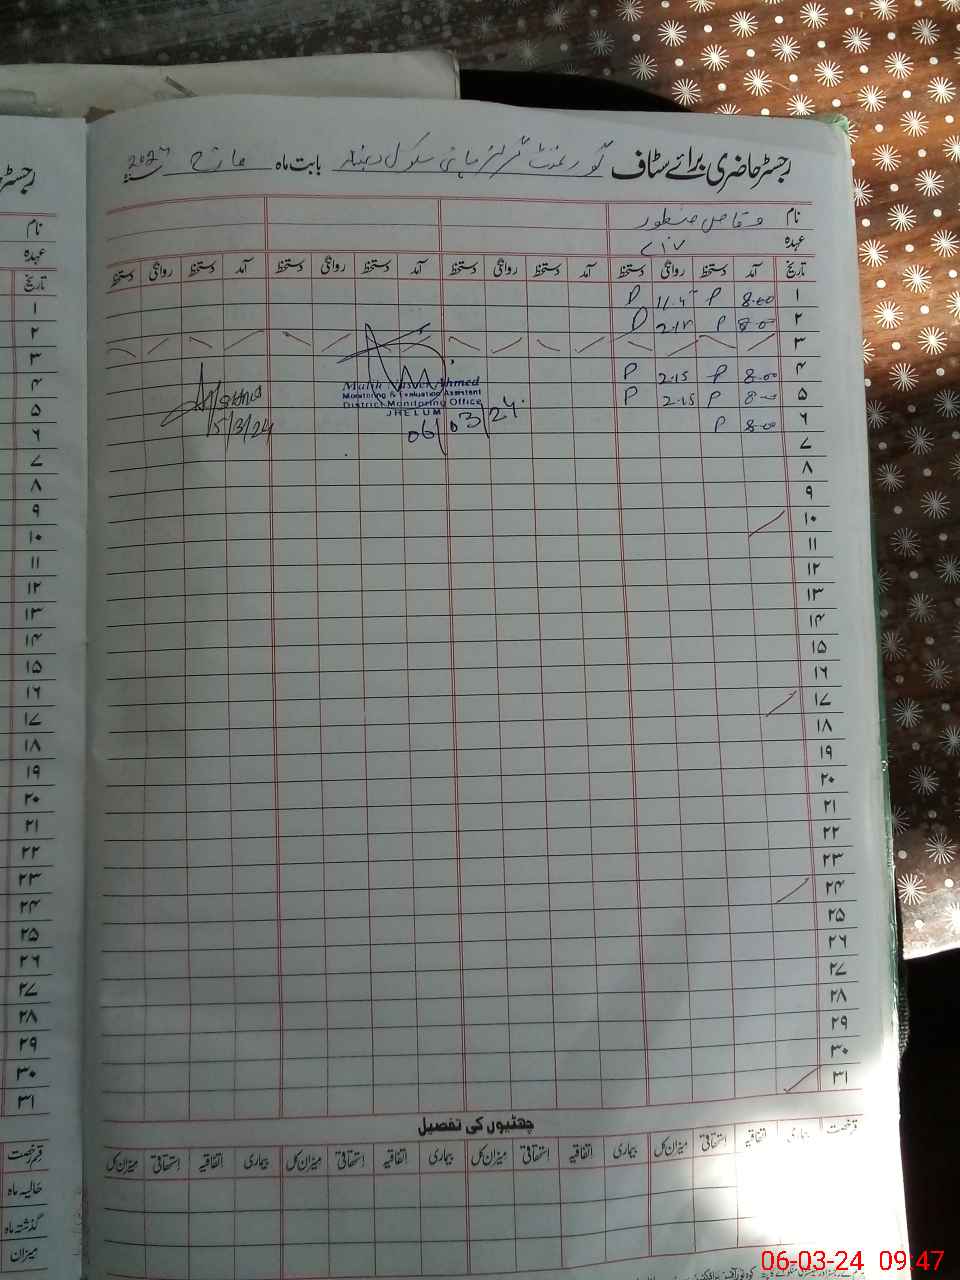 رجسٹر حاضری برائے سٹاف گورنمنٹ گرلز ہائی سکول بابت ماہ مارچ 2024
نام وقاص منظور
عہدہ
تاریخ آمد دستخط روانگی دستخط آمد دستخط روانگی دستخط آمد دستخط روانگی دستخط آمد دستخط روانگی دستخط
۱ 8.00 P 11.45 P
۲ 8.00 P 2.15 P
۳
۴ 8.00 P 2.15 P
۵ 8.00 P 2.15 P
۶ 8.00 P
۷
۸
۹
۱۰
۱۱
۱۲
۱۳
۱۴
۱۵
۱۶
۱۷
۱۸
۱۹
۲۰
۲۱
۲۲
۲۳
۲۴
۲۵
۲۶
۲۷
۲۸
۲۹
۳۰
۳۱
Monitoring & Evaluation Assistant
District Monitoring Office
JHELUM
06/03/24
5/3/24
چھٹیوں کی تفصیل
قسم رخصت بیماری اتفاقیہ استحقاقی میزان کل بیماری اتفاقیہ استحقاقی میزان کل بیماری اتفاقیہ استحقاقی میزان کل بیماری اتفاقیہ استحقاقی میزان کل
نام
عہدہ
تاریخ
۱
۲
۳
۴
۵
۶
۷
۸
۹
۱۰
۱۱
۱۲
۱۳
۱۴
۱۵
۱۶
۱۷
۱۸
۱۹
۲۰
۲۱
۲۲
۲۳
۲۴
۲۵
۲۶
۲۷
۲۸
۲۹
۳۰
۳۱
قسم رخصت
حالیہ ماہ
گذشتہ ماہ
میزان
06-03-24 09:47